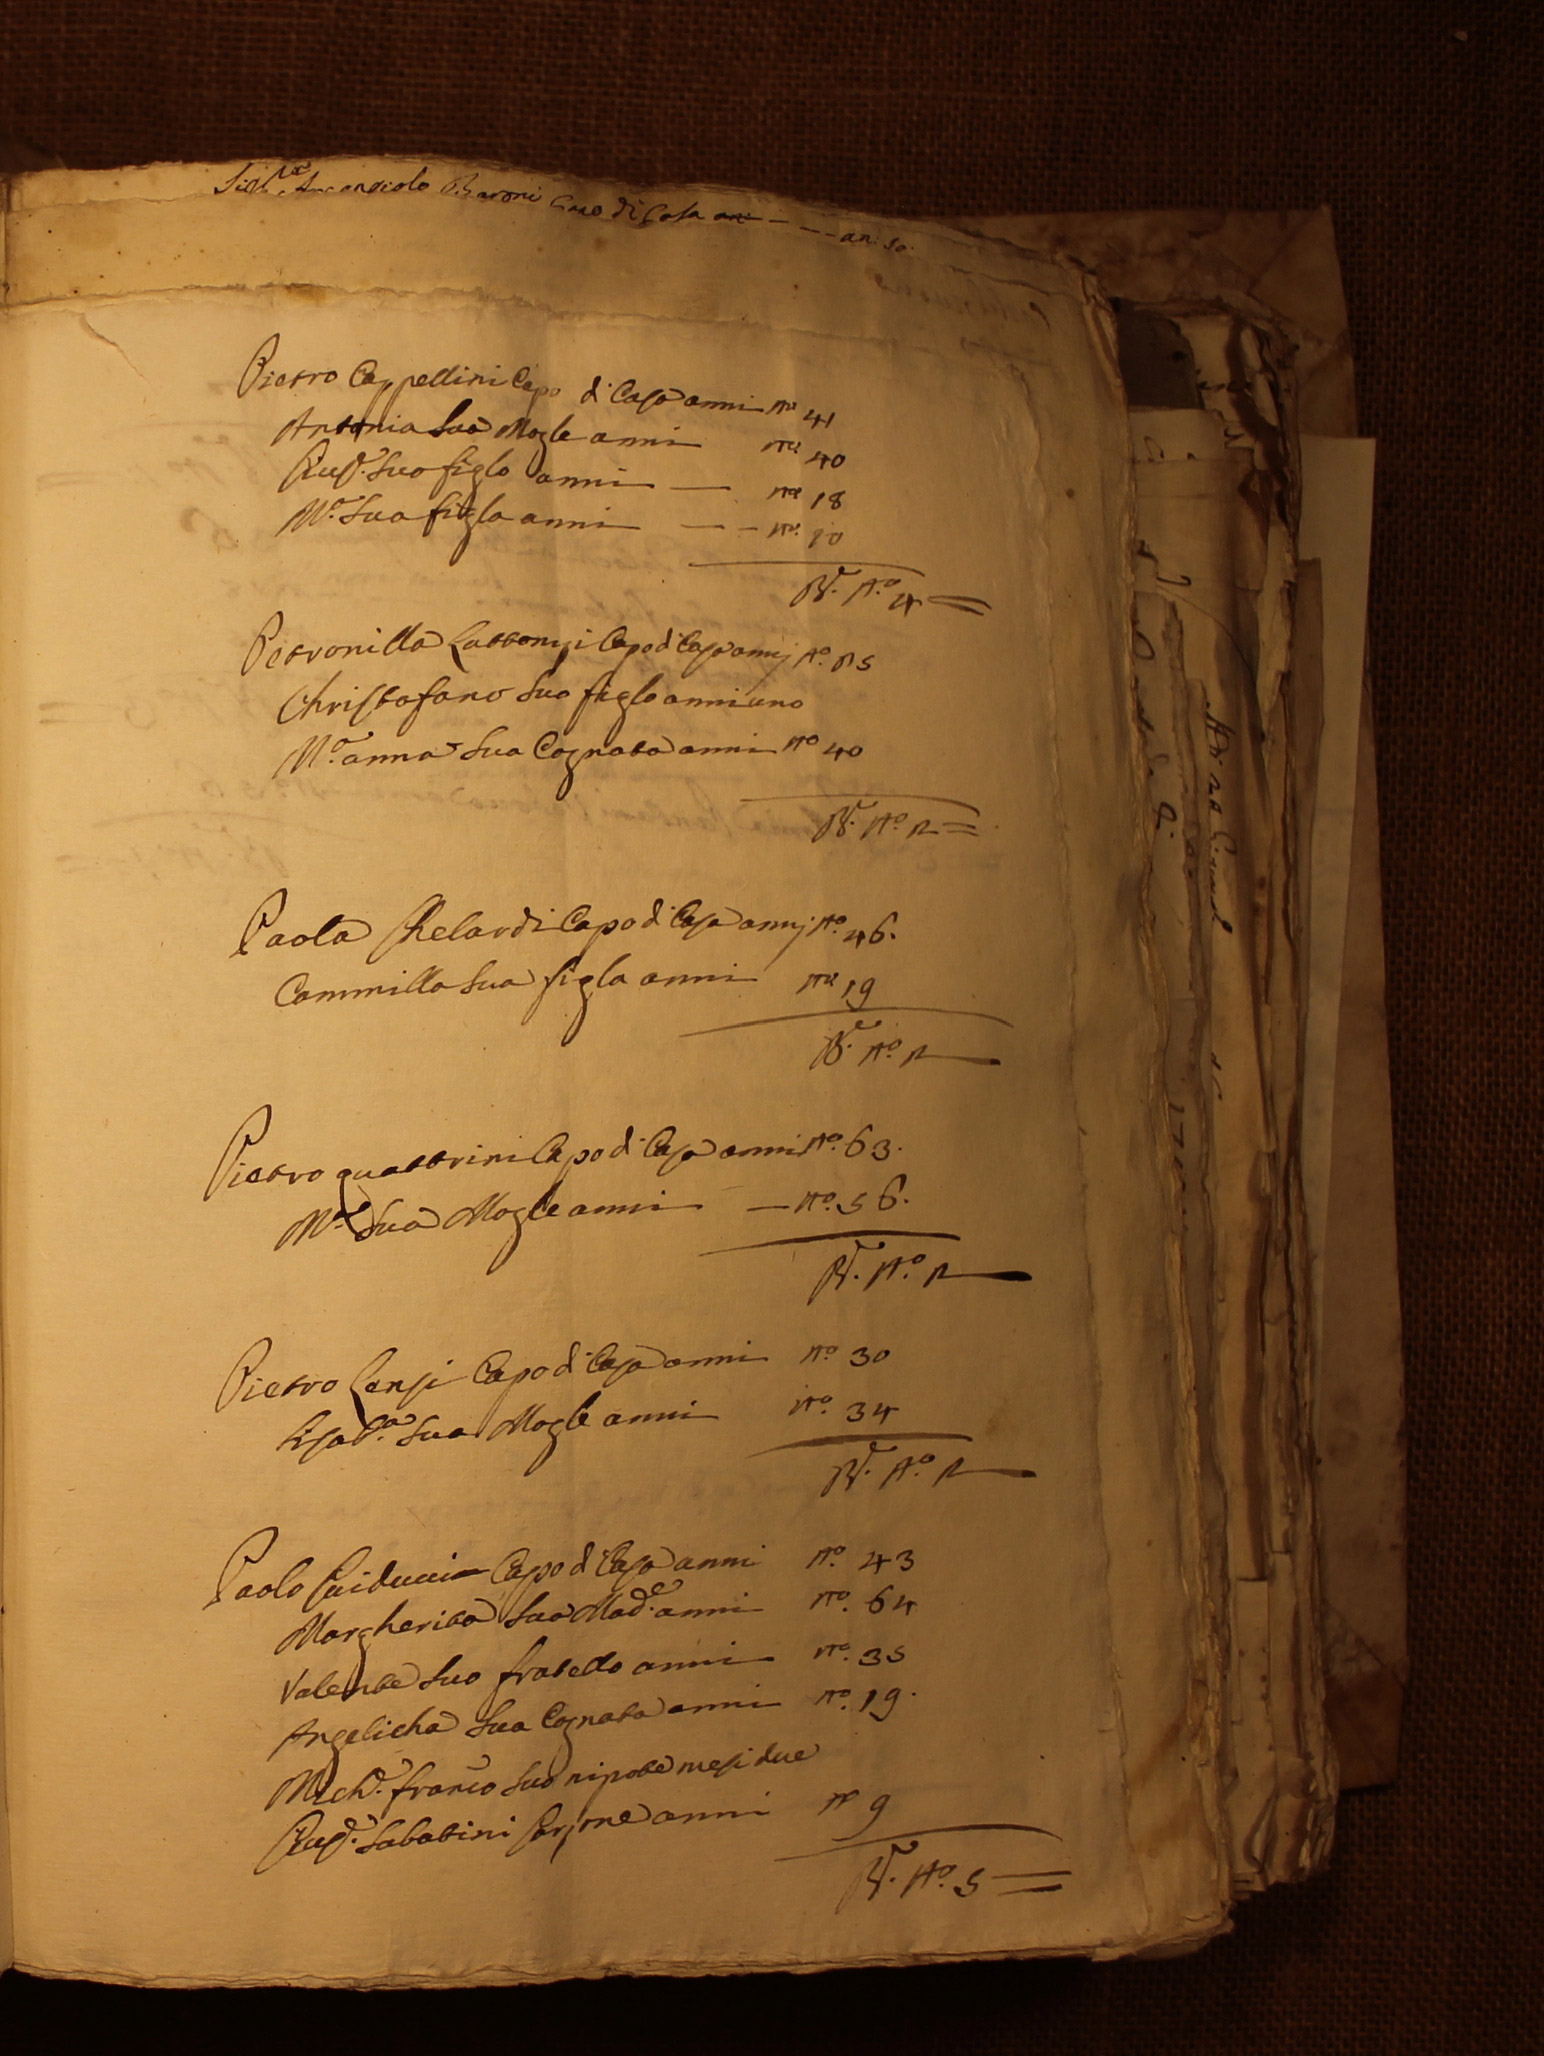 Baroni Capo di Casa an: 50.
Pietro Cappellini Capo di Casa anni no 41
Antonia Sua Mogle anni no 40
Suo figlo anni — no 18
Ma. Sua figla anni — — no. 10
Be. No. 4 =
Petronilla Capo di Casa annj No. 25
Christofano Suo figlo anni uno
Ma. anna Sua Cognata anni No 40
Be. No. 2 =
Paola Chelardi Capo di Casa annj No. 46.
Cammilla Sua figla anni no 19
Be. No. 2
Pietro quattrini Capo di Casa anni No. 63.
Ma. Sua Mogle anni — No. 56.
Be. No. 2
Pietro Lensi Capo di Casa anni No. 30
Lisaba. Sua Mogle anni No. 34
Be. No. 2
Paolo Guiducci Capo di Casa anni No. 43
Margherita Sua Made. anni No. 64
Valente Suo fratello anni no. 35
Angelicha Sua Cognata anni No. 19.
franco Suo nipote mesi due
Sabatini Garzone anni no 9
Be. No. 5 =